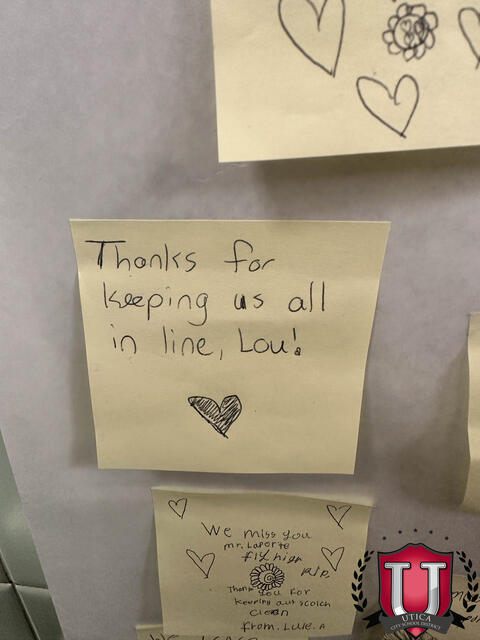 Thanks for
keeping us all
in line, Lou!
We miss you
mr. Laporte
fly high
R.I.P.
Thank you for
keeping out scolch
clean
from. Luie. A
U
UTICA
CITY SCHOOL DISTRICT